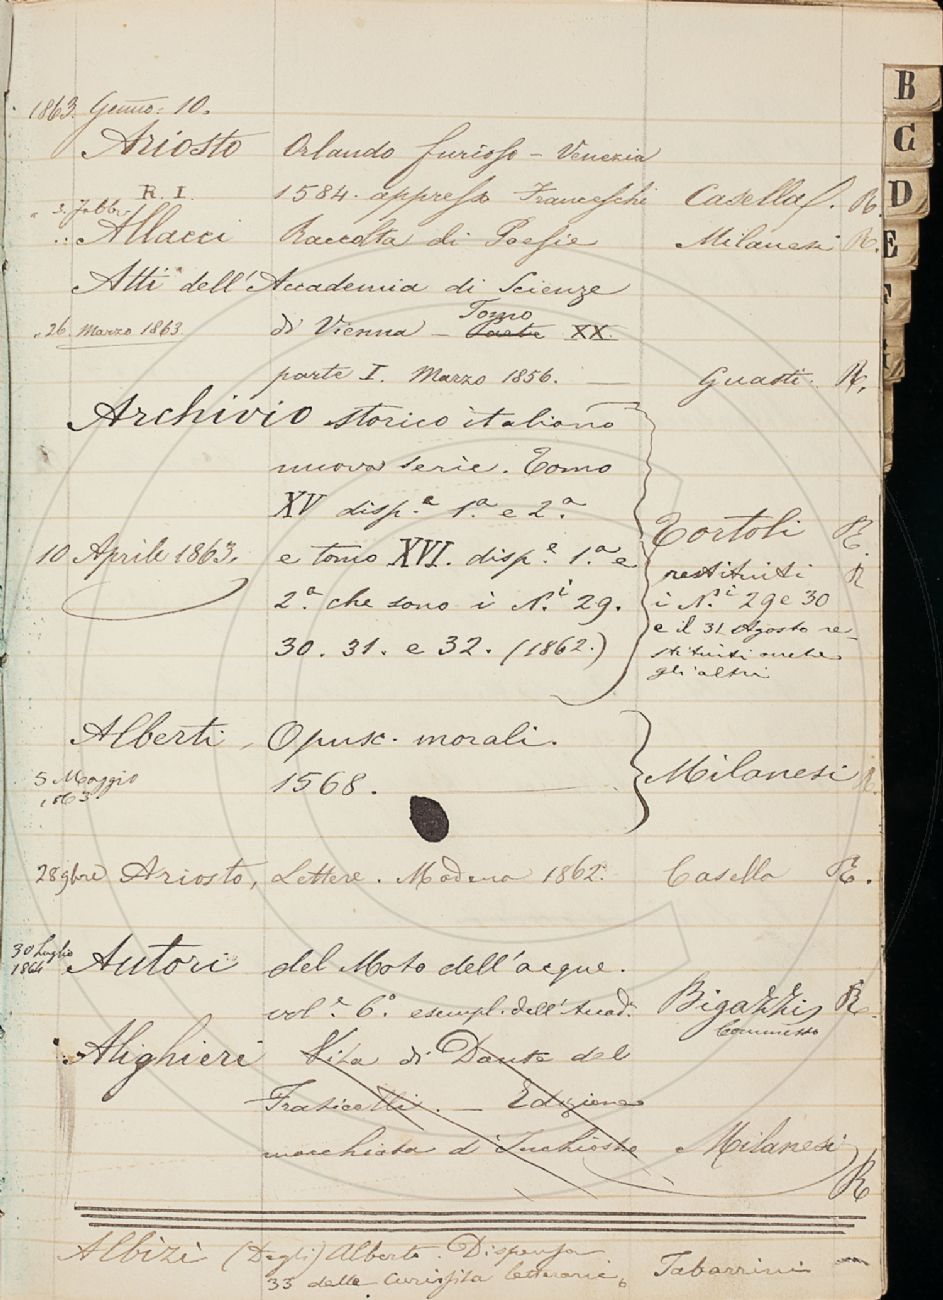 1863. Genno: 10.
Ariosto Orlando furioso - Venezia
R. I. 1584. appresso Franceschi Casella f. R.
" 3. Febbr
Allacci Raccolta di Poesie Milanesi R.
Atti dell'Accademia di Scienze
"26. Marzo 1863. di Vienna - Tomo Parte XX.
parte I. Marzo 1856. Guasti. R.
Archivio storico italiano
nuova serie. Tomo
XV disp.e 1.a e 2.a
10 Aprile 1863. e tomo XVI. disp.e 1.a e
2.a che sono i N.i 29.
30. 31. e 32. (1862.)
Tortoli R.
restituiti R
i N.i 29 e 30
e il 31 Agosto re-
stituiti anche
gli altri
Alberti, Opusc. morali.
5 Maggio 1863. 1568. Milanesi R.
28 9bre Ariosto, Lettere. Modena 1862. Casella R.
30 Luglio 1864 Autori del Moto dell'acque.
vol.e 6.o esempl. dell'Accad. Bigazzi R.
Commesso
Alighieri Vita di Dante del
Fraticelli. - Edizione
macchiata d'Inchiostro Milanesi R
Albizi (Degli) Alberto. Dispensa
33 delle Curiosità letterarie. Tabarrini
B
C
D
E
F